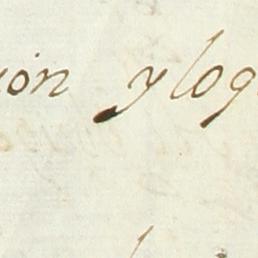 ión y log